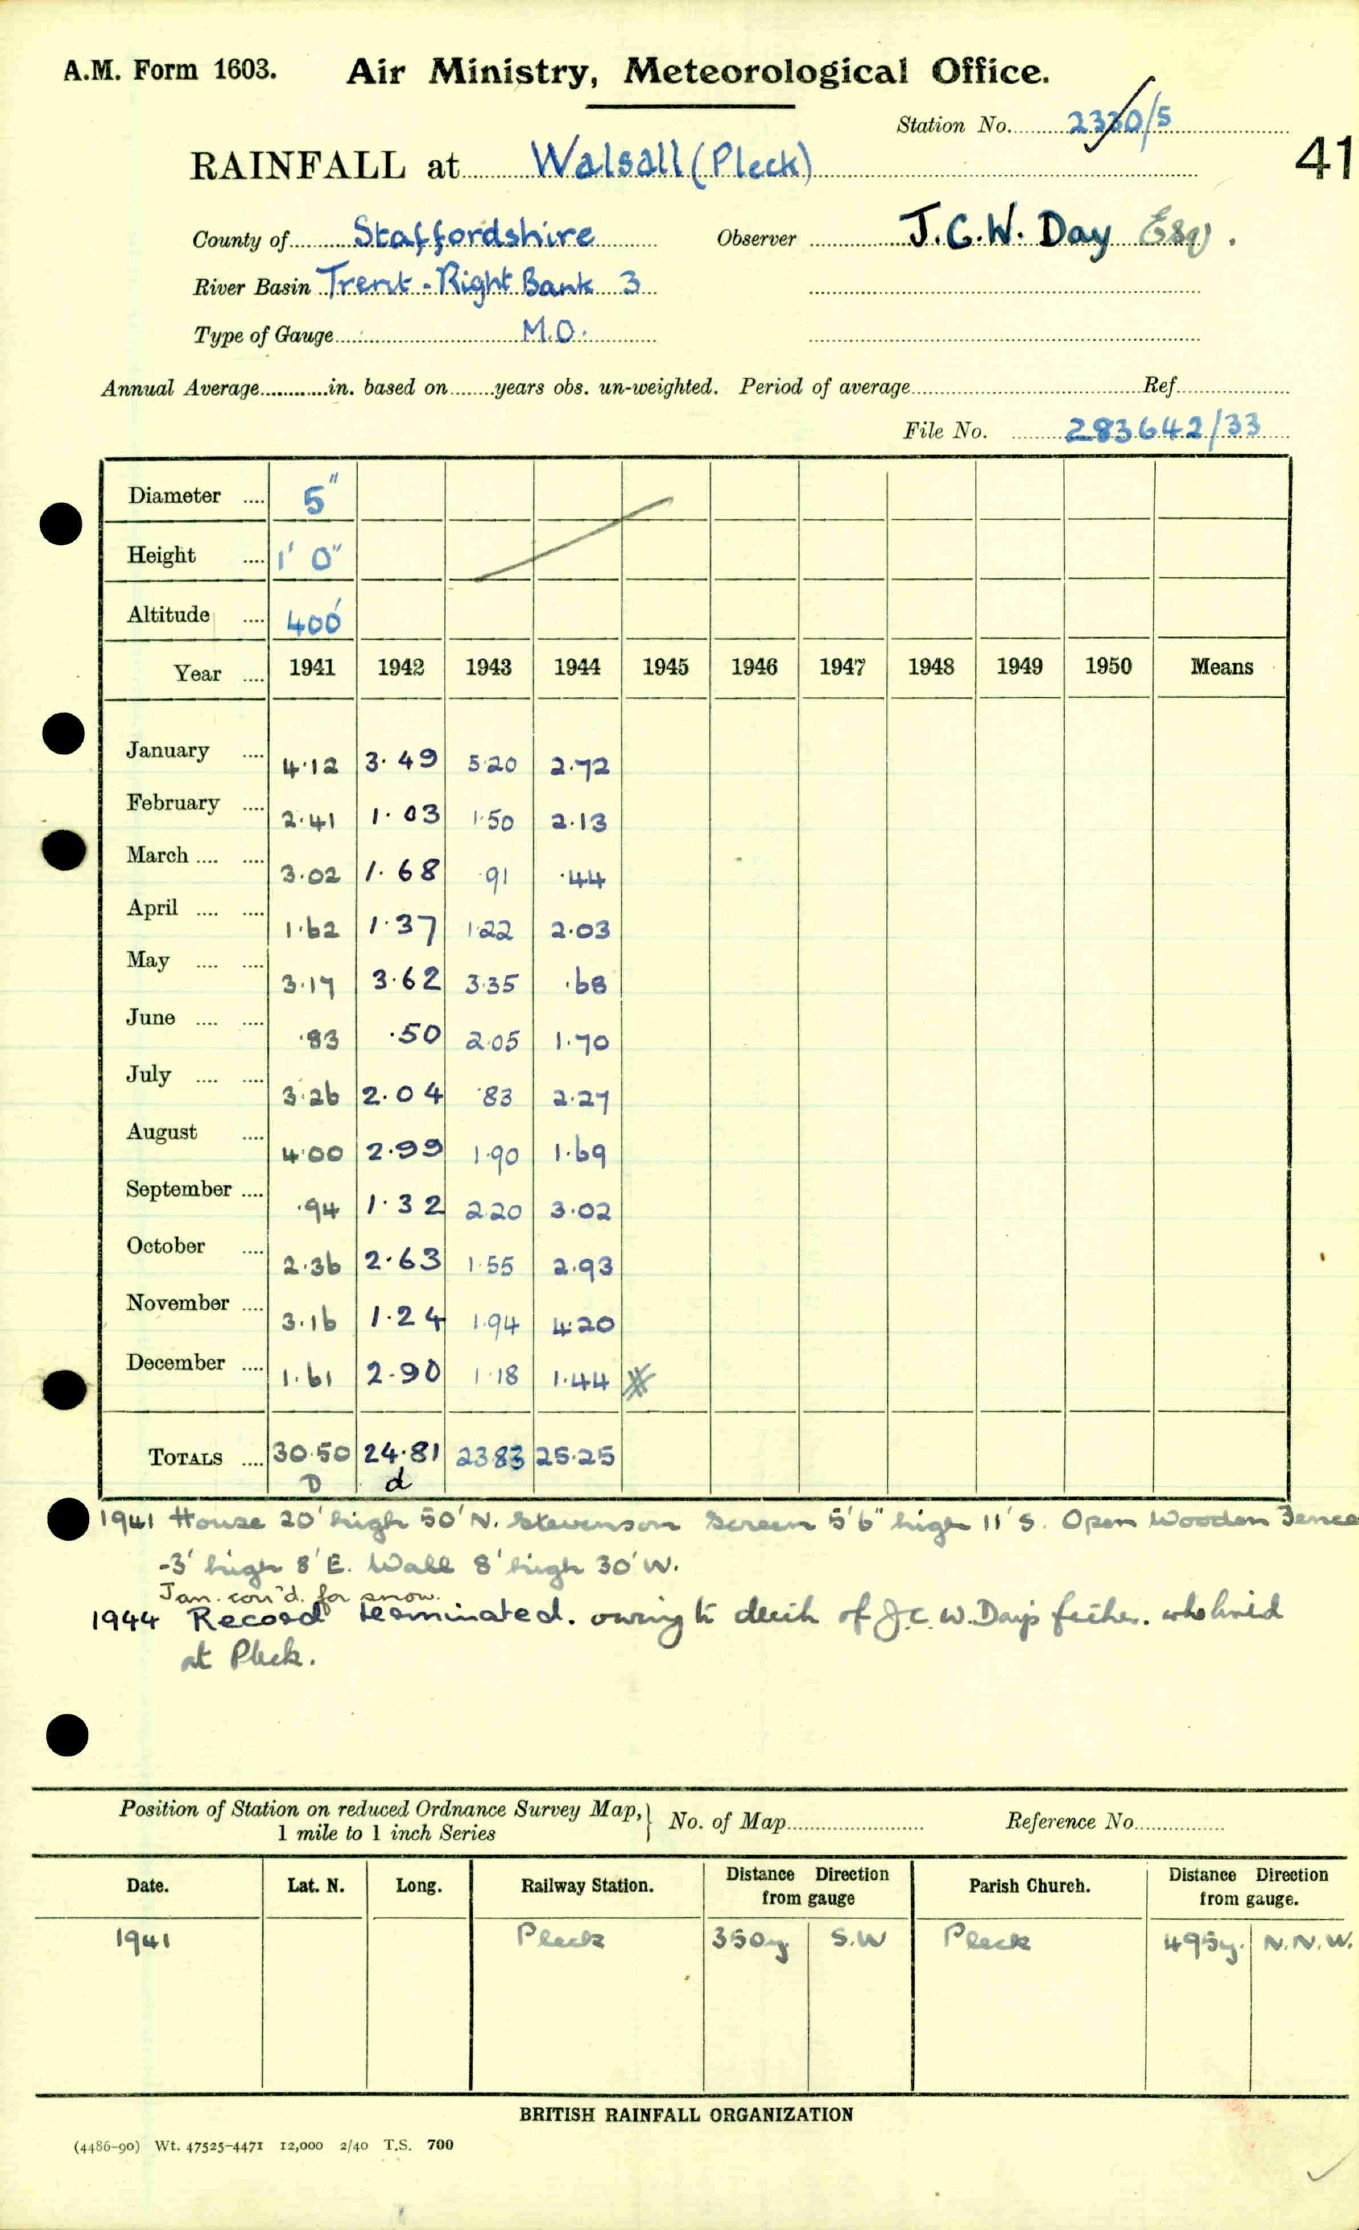 A.M. Form 1603. Air Ministry, Meteorological Office.
Station No. 2330/5
41
RAINFALL at Walsall (Pleck)
County of Staffordshire Observer J.C.W. Day Esq.
River Basin Trent - Right Bank 3
Type of Gauge M.O.
Annual Average in. based on years obs. un-weighted. Period of average Ref.
File No. 283642/33
Diameter 5"
Height 1' 0"
Altitude 400'
Year 1941 1942 1943 1944 1945 1946 1947 1948 1949 1950 Means
January 4.12 3.49 5.20 2.72
February 2.41 1.03 1.50 2.13
March 3.02 1.68 .91 .44
April 1.62 1.37 1.22 2.03
May 3.17 3.62 3.35 .68
June .83 .50 2.05 1.70
July 3.26 2.04 .83 2.27
August 4.00 2.99 1.90 1.69
September .94 1.32 2.20 3.02
October 2.36 2.63 1.55 2.93
November 3.16 1.24 1.94 4.20
December 1.61 2.90 1.18 1.44
TOTALS 30.50 24.81 23.83 25.25
D d
1941 House 20' high 50' N. Stevenson Screen 5'6" high 11' S. Open Wooden Fence
-3' high 8' E. Wall 8' high 30' W.
Jan. con'd. for snow.
1944 Record terminated. owing to death of J.C.W. Day's father. who lived
at Pleck.
Position of Station on reduced Ordnance Survey Map, 1 mile to 1 inch Series No. of Map Reference No.
Date. Lat. N. Long. Railway Station. Distance Direction from gauge Parish Church. Distance Direction from gauge.
1941 Pleck 350y S.W Pleck 495y. N.N.W.
BRITISH RAINFALL ORGANIZATION
(4486-90) Wt. 47525-4471 12,000 2/40 T.S. 700